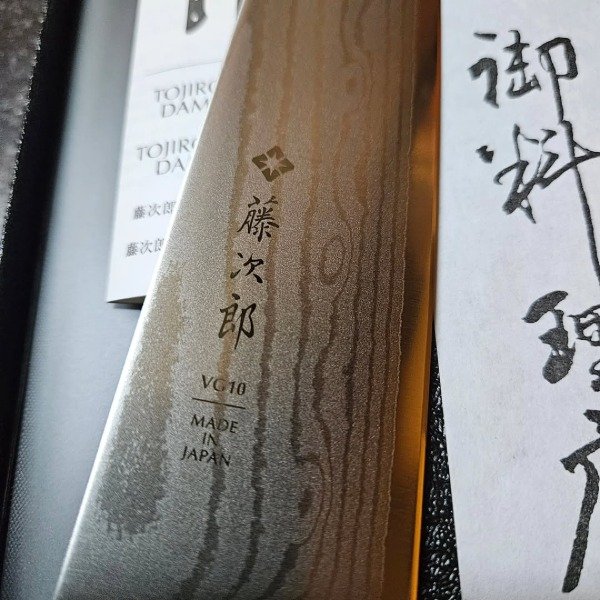 TOJIRO
DAM
TOJIRO
DAM
藤次郎
藤次郎
藤次郎
VG10
MADE
IN
JAPAN
御料理